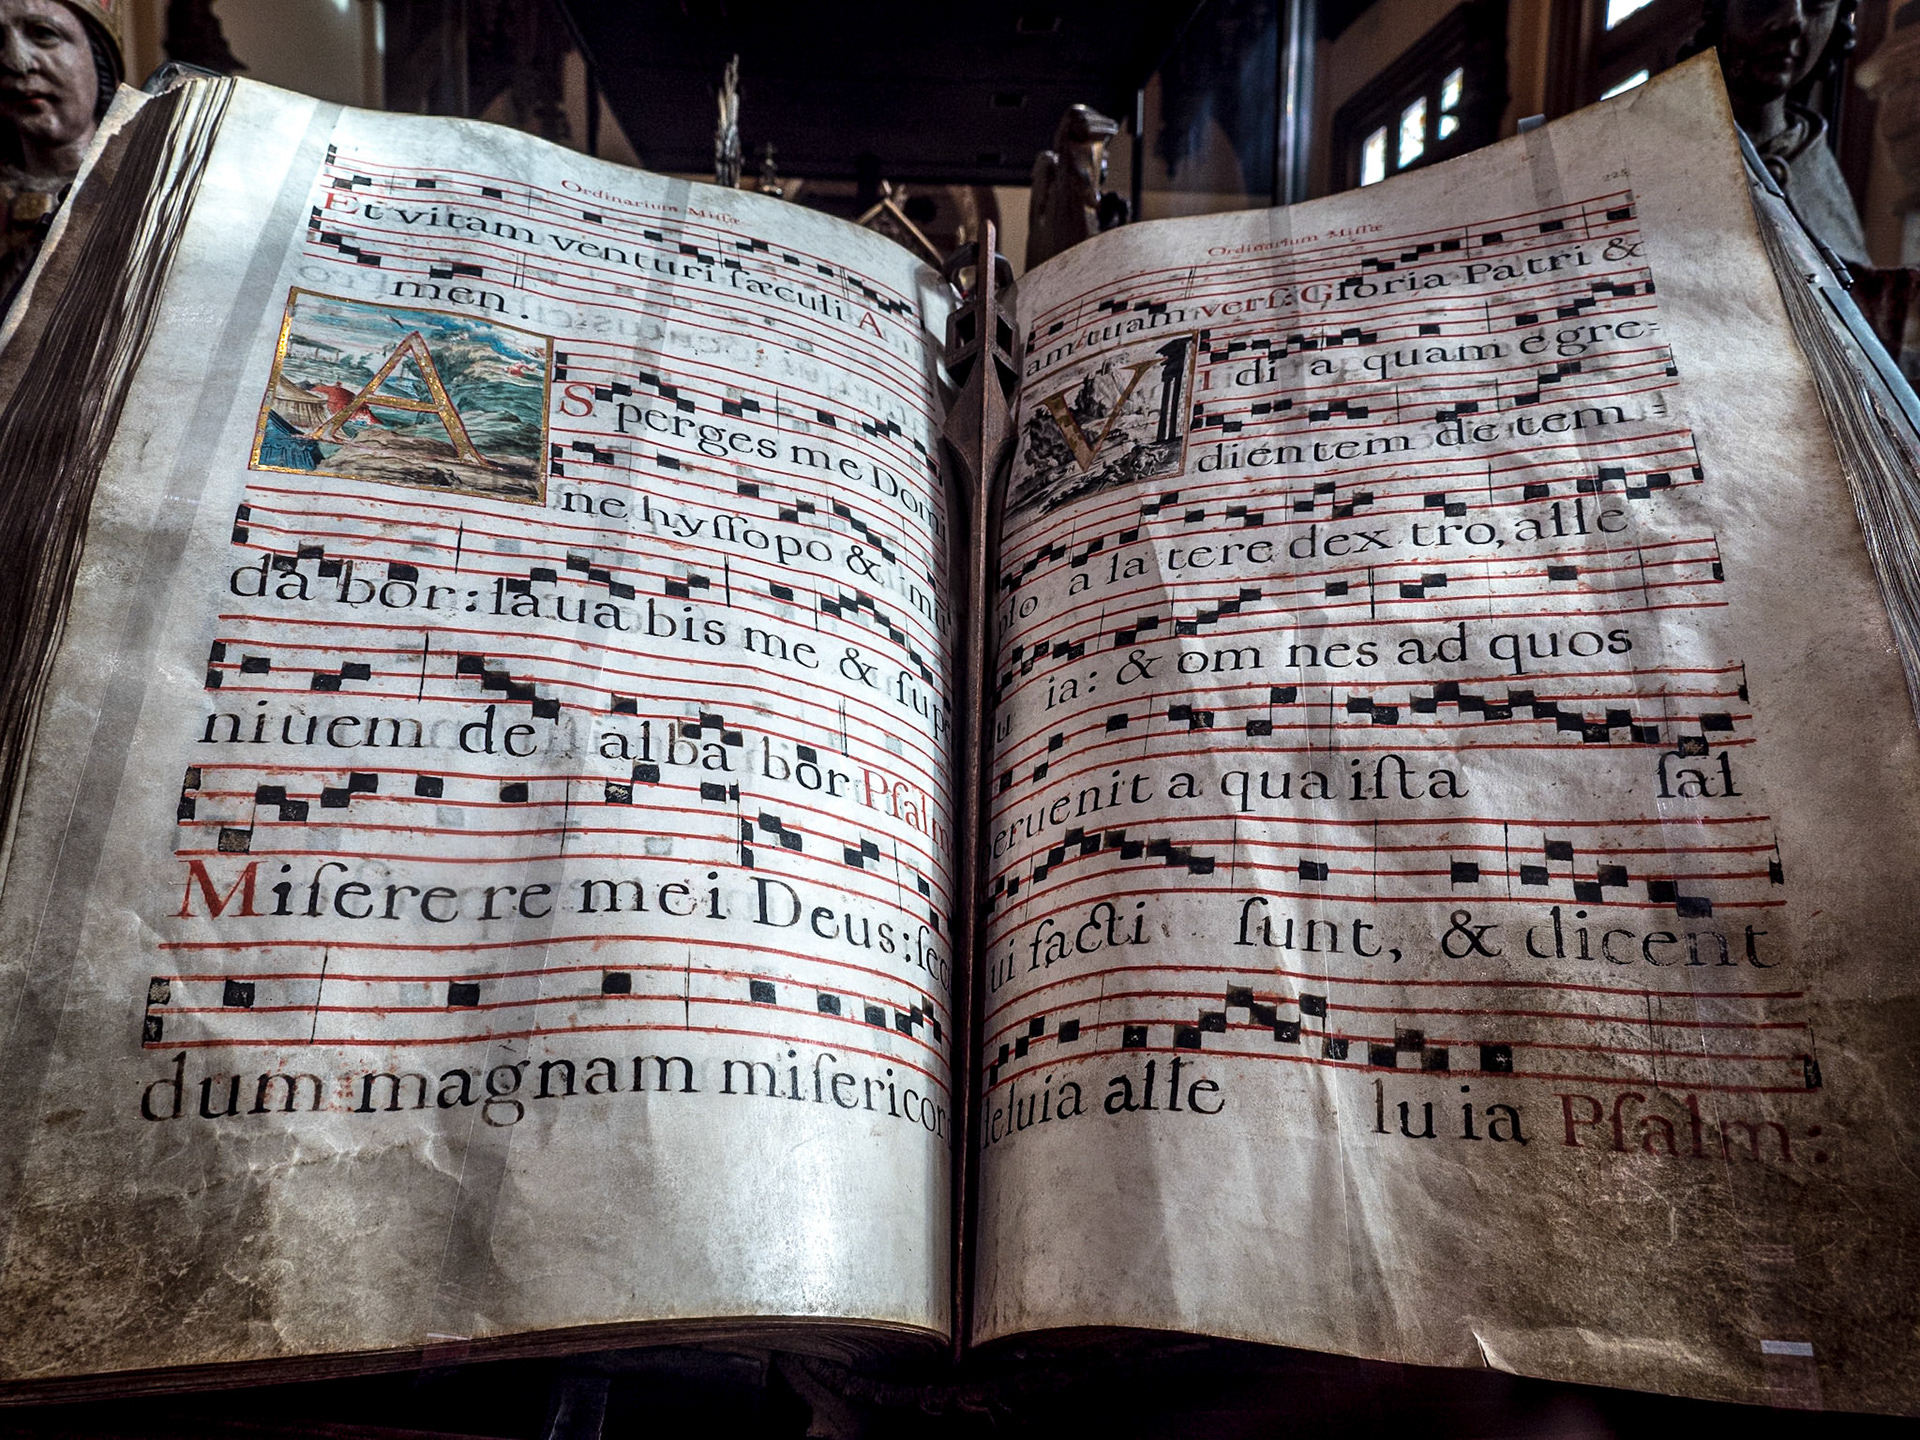 Ordinarium Miſſæ
Et vitam venturi ſæculi A
men.
A
S perges me Domi
ne hyſſopo &
da bor: laua bis me & ſup
niuem de alba bor Pſalm
Miſere re mei Deus: ſec
dum magnam miſericor
Ordinarium Miſſæ
am tuam verſ: Gloria Patri &
V
I di a quam e gre-
dientem de tem-
plo a la tere dex tro, alle
lu ia: & om nes ad quos
peruenit a qua iſta ſal
ui facti ſunt, & dicent
leluia alle lu ia Pſalm: